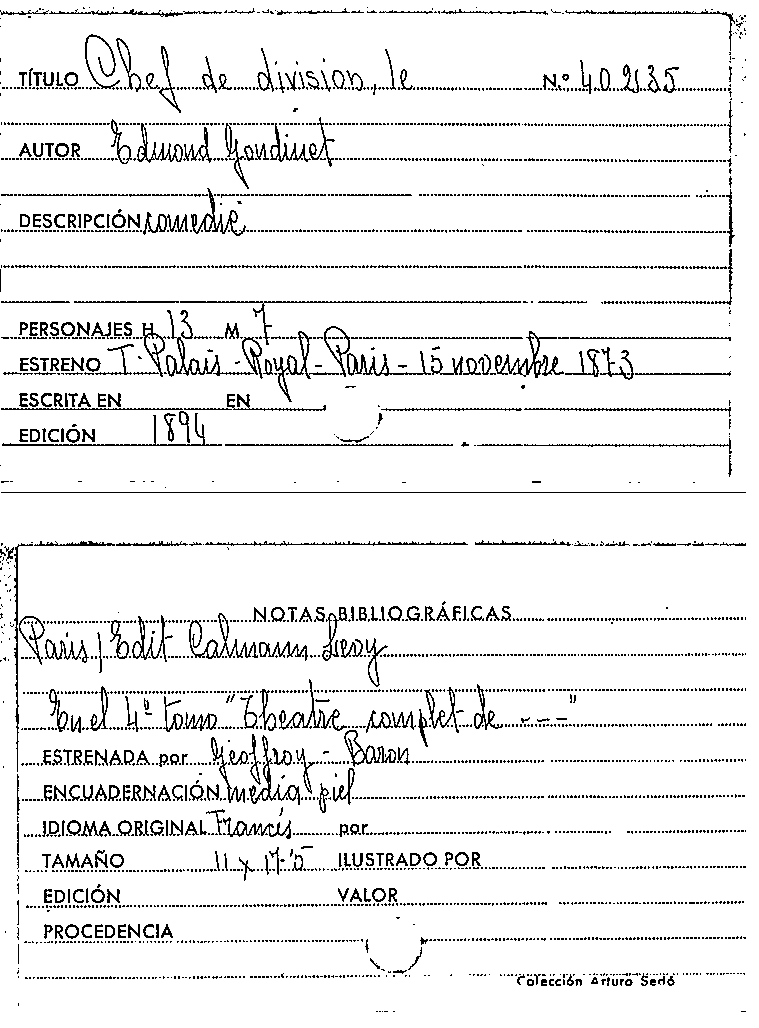 TÍTULO Chef de division, le N.º 40235
AUTOR Edmond Gondinet
DESCRIPCIÓN comedie
PERSONAJES H. 13 M. 7
ESTRENO T. Palais-Royal-Paris-15 novembre 1873
ESCRITA EN EN
EDICIÓN 1894
NOTAS BIBLIOGRÁFICAS
Paris / Edit Calmann Levy
En el 4º tomo "Theatre complet de ---"
ESTRENADA por Geoffroy - Baron
ENCUADERNACIÓN media piel
IDIOMA ORIGINAL Francés por
TAMAÑO 11 x 17'5 ILUSTRADO POR
EDICIÓN VALOR
PROCEDENCIA
Colección Arturo Sedó